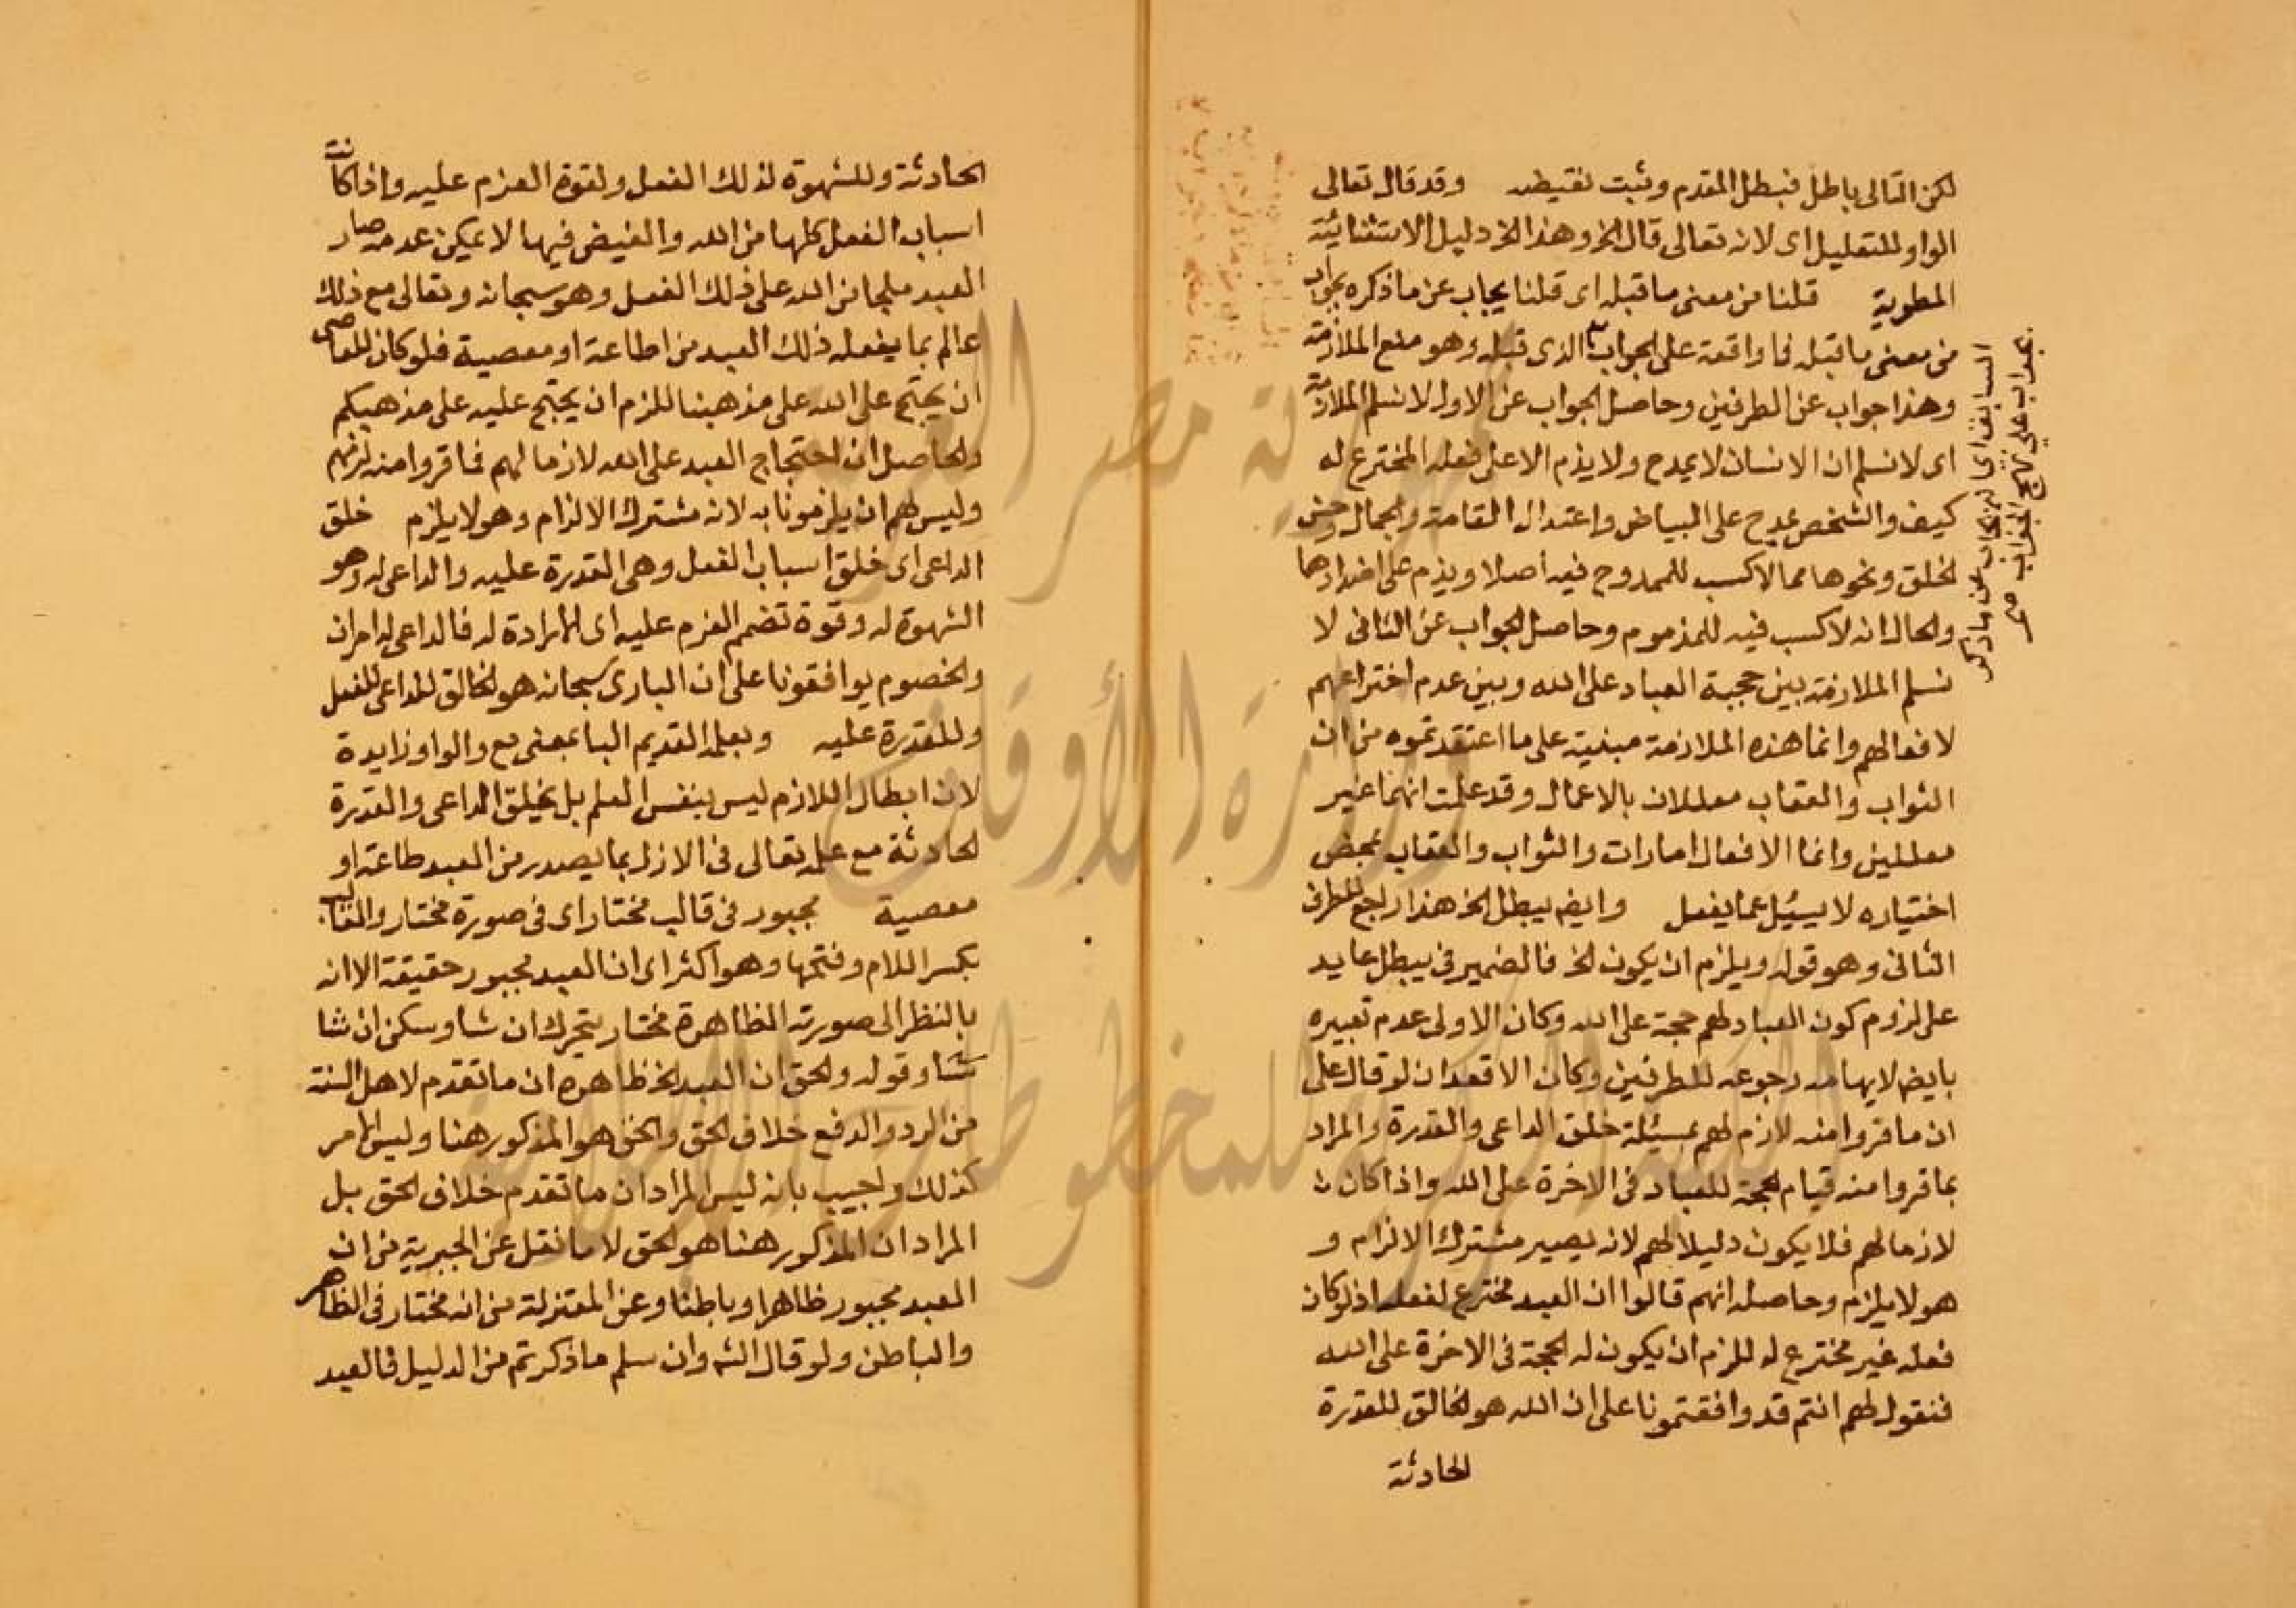 لكن التالى باطل فبطل المقدم وثبت نقيضه وقد قال تعالى
الواو للتعليل اى لانه تعالى قال الخ وهذا الخ دليل الاستثنائية
المطوية قلنا من معنى ما قبله اى قلنا يجاب عن ما ذكره بجواب
من معنى ما قبله فما واقعة على الجواب الذى قبله وهو منع الملازمة
وهذا جواب عن الطرفين وحاصل الجواب عن الاول لا نسلم الملازمة
اى لا نسلم ان الانسان لا يمدح ولا يذم الا على فعله المخترع له
كيف والشخص يمدح على البياض واعتدال القامة والجمال وحسن
الخلق ونحوها مما لا كسب للممدوح فيه أصلا ويذم على اضدادها
والحال انه لا كسب فيه للمذموم وحاصل الجواب عن الثانى لا
نسلم الملازمة بين حجية العباد على الله وبين عدم اختراعهم
لافعالهم وانما هذه الملازمة مبنية على ما اعتقدتموه من ان
الثواب والعقاب معللان بالاعمال وقد علمت انهما غير
معللين وانما الافعال امارات والثواب والعقاب بمحض
اختياره لا يسئل عما يفعل وايضا يبطل الخ هذا راجع للطرف
الثانى وهو قوله ويلزم ان يكون الخ فالضمير فى يبطل عايد
على لزوم كون العباد لهم حجة على الله وكان الاولى عدم تعبيره
بايضا لايهامه رجوعه للطرفين وكان الاقعد ان لو قال على
ان ما فروا منه لازم لهم بمسئلة خلق الداعى والقدرة والمراد
بما فروا منه قيام الحجة للعباد فى الاخرة على الله واذا كان
لازما لهم فلا يكون دليلا لهم لانه يصير مشترك الالزام و
هو لا يلزم وحاصله انهم قالوا ان العبد مخترع لفعله اذ لو كان
فعله غير مخترع له للزم ان يكون له الحجة فى الاخرة على الله
فنقول لهم انتم قد وافقتمونا على ان الله هو الخالق للقدرة
الحادثة
السابق اى انه يجاب عن ما ذكر
بجواب على نهج الجواب صح
الحادثة وللشهوة لذلك الفعل ولقوة العزم عليه واذا كانت
اسباب الفعل كلها من الله والفيض فيها لا يمكن عدمه صار
العبد ملجا من الله على ذلك الفعل وهو سبحانه وتعالى مع ذلك
عالم بما يفعله ذلك العبد من اطاعة او معصية فلو كان للعاصى
ان يحتج على الله على مذهبنا للزم ان يحتج عليه على مذهبكم
والحاصل ان احتجاج العبد على الله لازما لهم فما فروا منه لزمهم
وليس لهم ان يلزمونا به لانه مشترك الالزام وهو لا يلزم خلق
الداعى اى خلق اسباب الفعل وهى القدرة عليه والداعى له وهو
الشهوة له وقوة تضمم العزم عليه اى الارادة له فالداعى له امران
والخصوم يوافقونا على ان البارى سبحانه هو الخالق للداعى للفعل
وللقدرة عليه وبعلمه القديم البا بمعنى مع والواو زايدة
لان ابطال اللازم ليس بنفس العلم بل بخلق الداعى والقدرة
الحادثة مع علمه تعالى فى الازل بما يصدر من العبد طاعة او
معصية مجبور فى قالب مختار اى فى صورة مختار والقالب
بكسر اللام وفتحها وهو اكثر اى ان العبد مجبور حقيقة الا انه
بالنظر الى صورته الظاهرة مختار يتحرك ان شا وسكن ان شا
شا وقوله والحق ان العبد الخ ظاهره ان ما تقدم لاهل السنة
من الرد والدفع خلاف الحق والحق هو المذكور هنا وليس الامر
كذلك واجيب بانه ليس المراد ان ما تقدم خلاف الحق بل
المراد ان المذكور هنا هو الحق لا ما نقل عن الجبرية من ان
العبد مجبور ظاهرا وباطنا وعن المعتزلة من انه مختار فى الظاهر
والباطن ولو قال الشه وان سلم ما ذكرتم من الدليل فالعبد